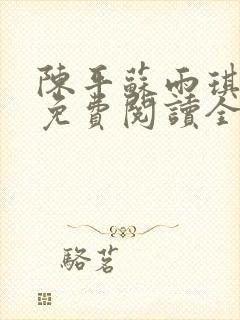 陳平蘇雨琪
免費閱讀全
駱茗